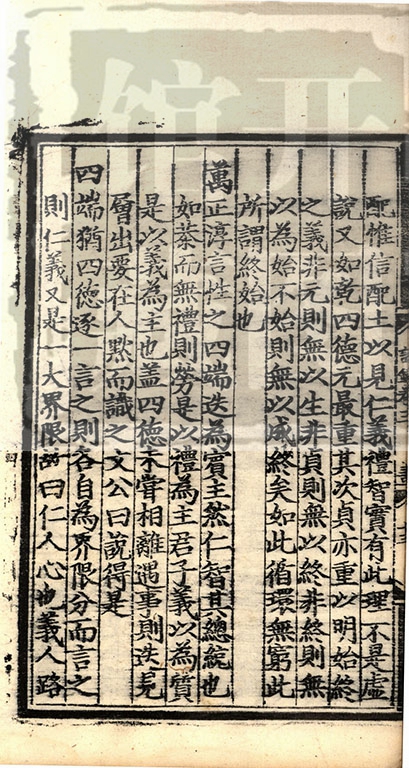 配惟信配土以見仁義禮智實有此理不是虛
說又如乾四德元最重其次貞亦重以明始終
之義非元則無以生非貞則無以終非終則無
以為始不始則無以成終矣如此循環無窮此
所謂終始也
萬正淳言性之四端迭為賓主然仁智其總統也
如恭而無禮則勞是以禮為主君子義以為質
是以義為主也蓋四德未嘗相離遇事則迭見
層出要在人默而識之文公曰說得是
四端猶四德逐一言之則各自為界限分而言之
則仁義又是一大界限故曰仁人心也義人路